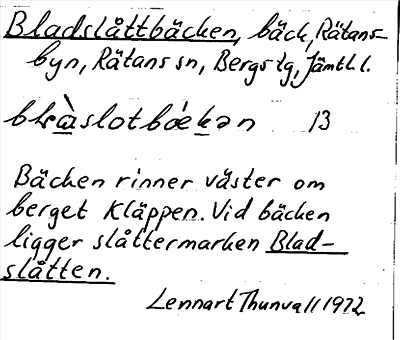 Bladslåttbäcken, bäck, Rätans-
byn, Rätans sn, Bergs tg, Jämtl l.
13
Bäcken rinner väster om
berget Kläppen. Vid bäcken
ligger slåttermarken Blad-
slåtten.
Lennart Thunvall 1972